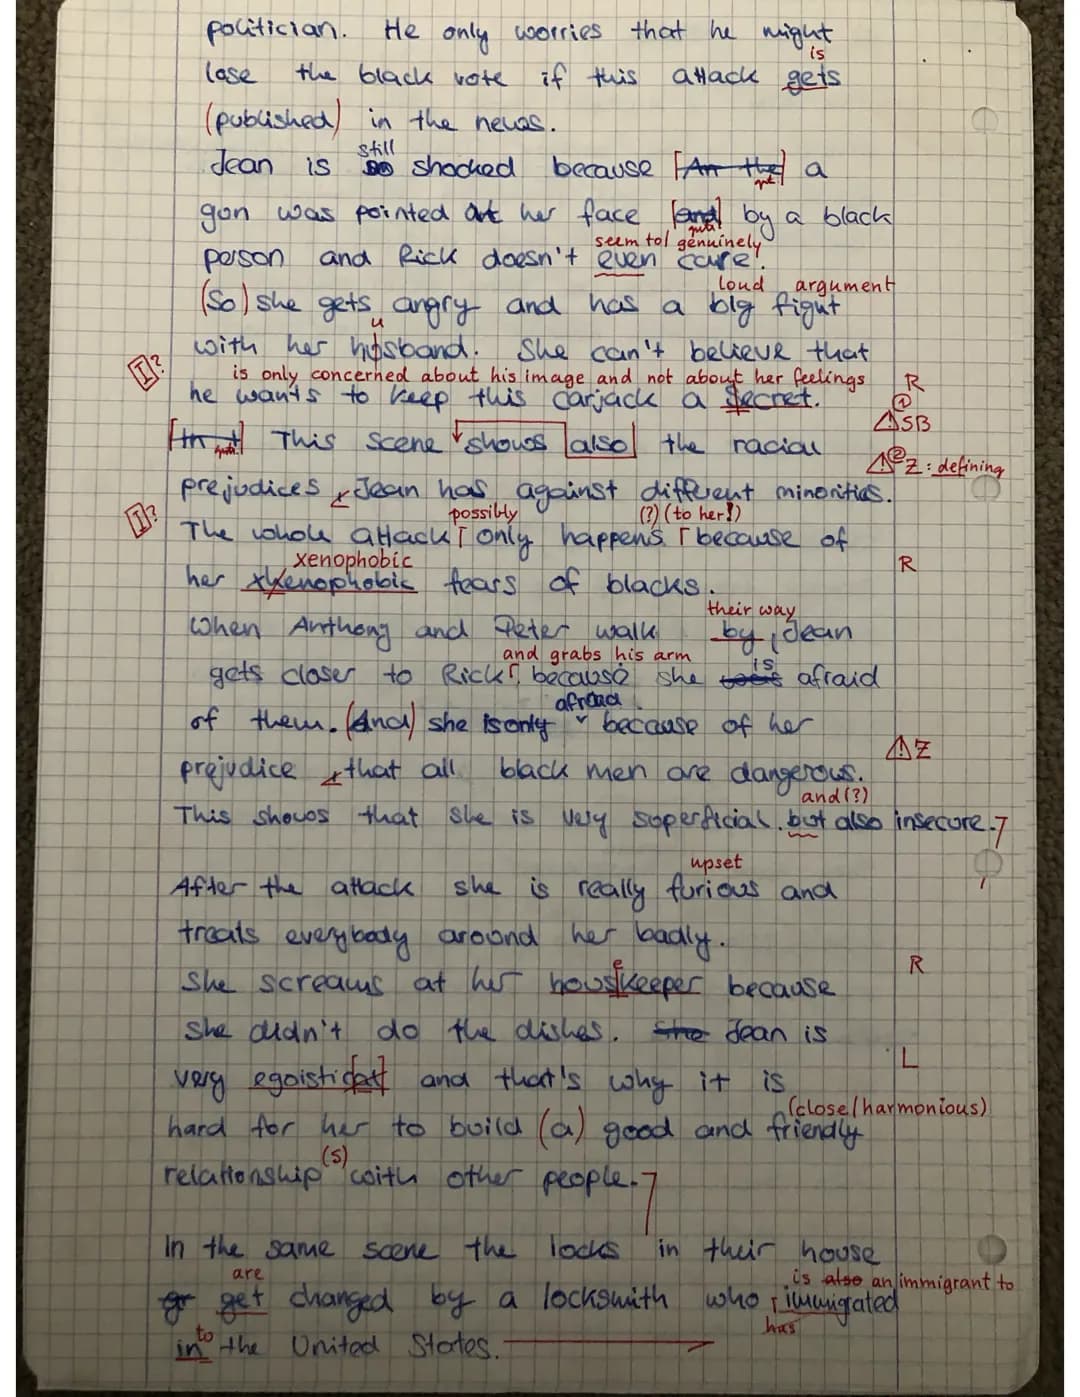 politician. He only worries that he might
is
lose the black vote if this attack gets
(published) in the news.
still
Jean is so shocked because [An the] a
gut
gun was pointed at her face [and] by a black
gut!
seem to/ genuinely
person and Rick doesn't even care!
loud argument
(So) she gets angry and has a big fight
u
with her hosband. She can't believe that
I?
is only concerned about his image and not about her feelings
R
he wants to keep this carjack a secret.
① SB
[In t] This scene shows also the racial
gut!
② Z: defining
prejudices, Jean has, against different minorities.
I?
possibly (?) (to her!)
The whole attack only happens because of
xenophobic
R
her xhenophobic fears of blacks.
their way
When Anthony and Peter walk by, Jean
and grabs his arm is
gets closer to Rick, because she gets afraid
afraid
of them. (And) she is only because of her
Z
prejudice, that all black men are dangerous.
and (?)
This shows that she is very superficial but also insecure.
upset
After the attack she is really furious and
treats everybody around her badly.
e R
She screams at her houskeeper because
she didn't do the dishes. She Jean is
L
very egoistic[al] and that's why it is
(close/harmonious)
hard for her to build (a) good and friendly
(s)
relationship with other people.
In the same scene the locks in their house
are is also an immigrant to
gr get changed by a locksmith who immigrated
to has
in the United States.